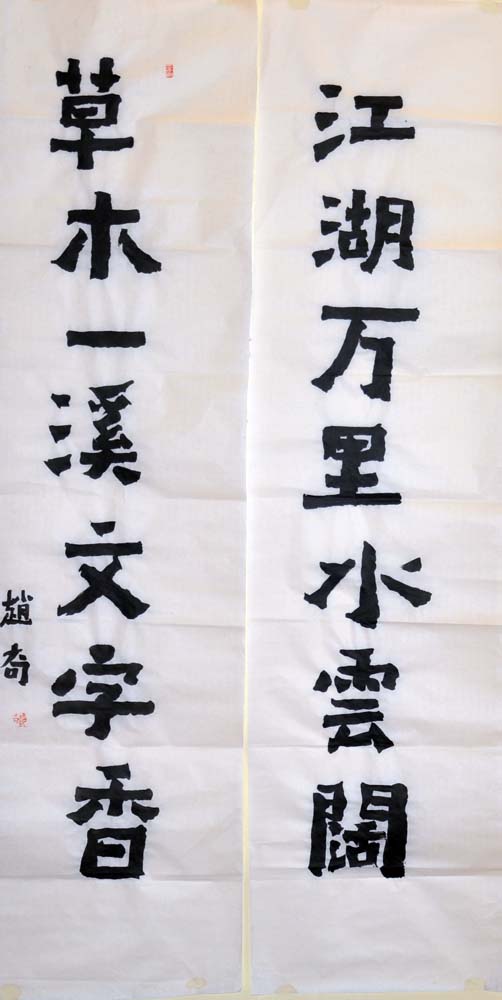 江湖万里水雲闊
草木一溪文字香
趙奇